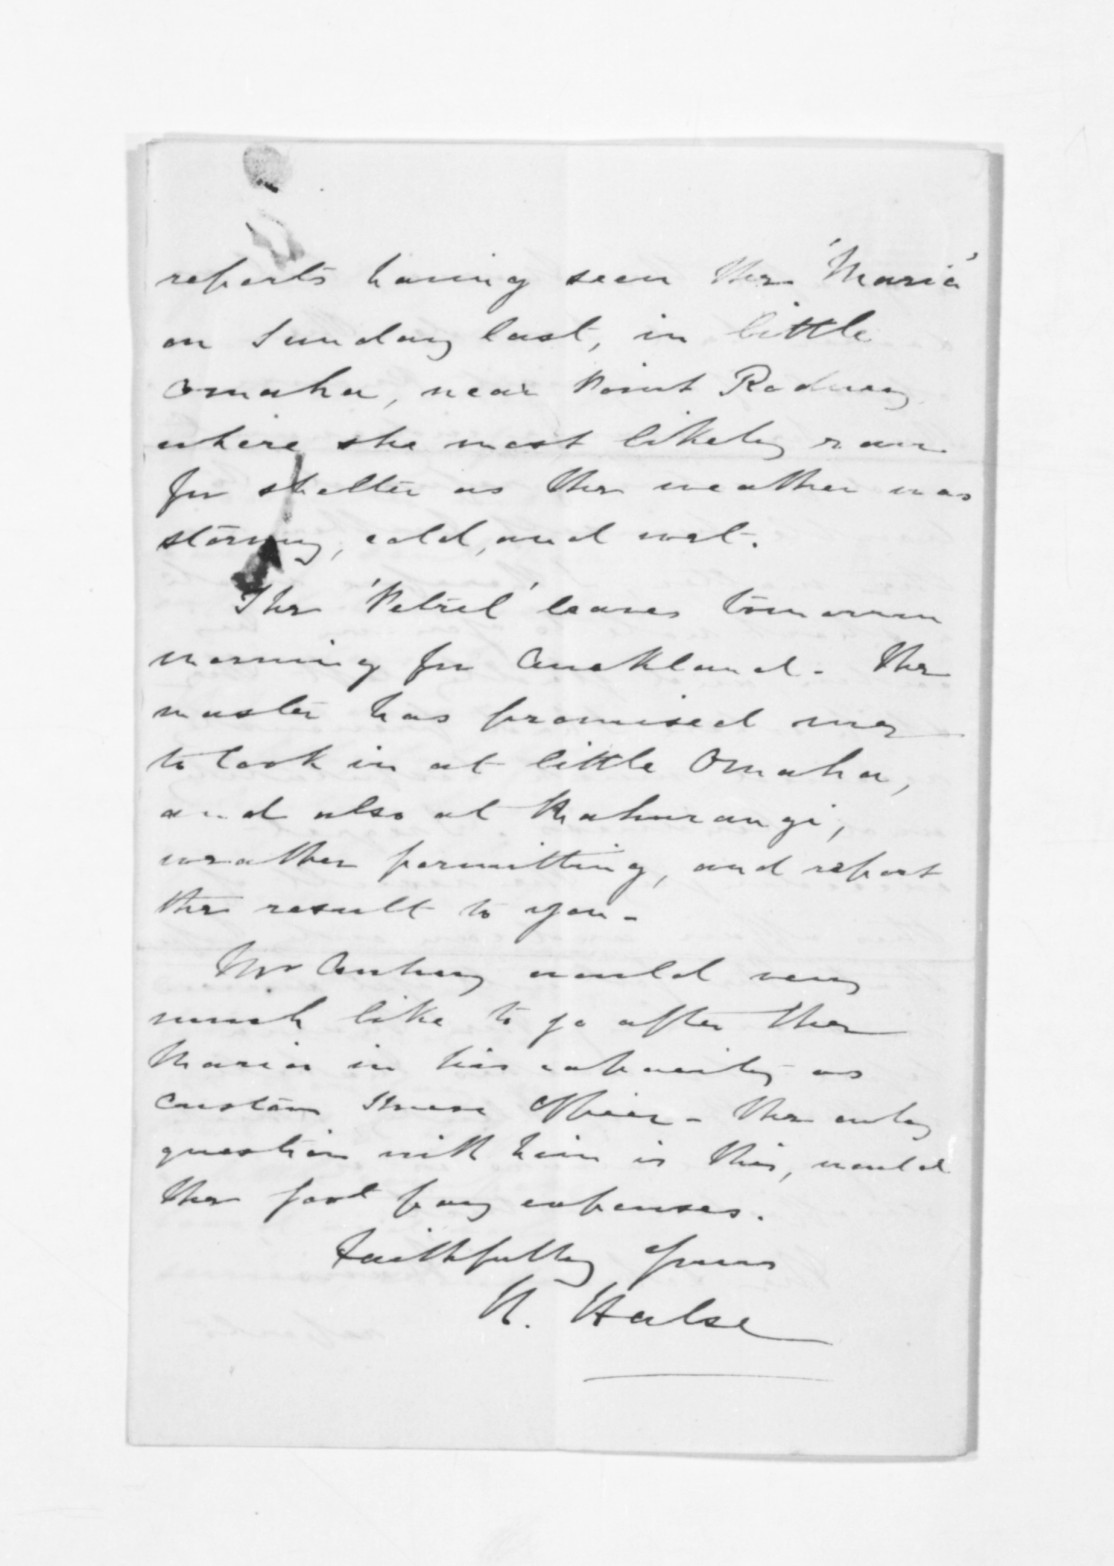 reports having seen the 'Maria'
on Sunday last, in little
Omaha, near Point Rodney,
where she most likely ran
for shelter as the weather was
stormy, cold, and wet.
The 'Petrel' leaves tomorrow
morning for Auckland. The
master has promised me
to look in at little Omaha,
and also at Mahurangi,
weather permitting, and report
the result to you -
Mr Aubrey would very
much like to go after the
Maria in his capacity as
Custom House Officer - the only
question with him is this, would
the Govt pay expenses.
Faithfully yours
H. Halse